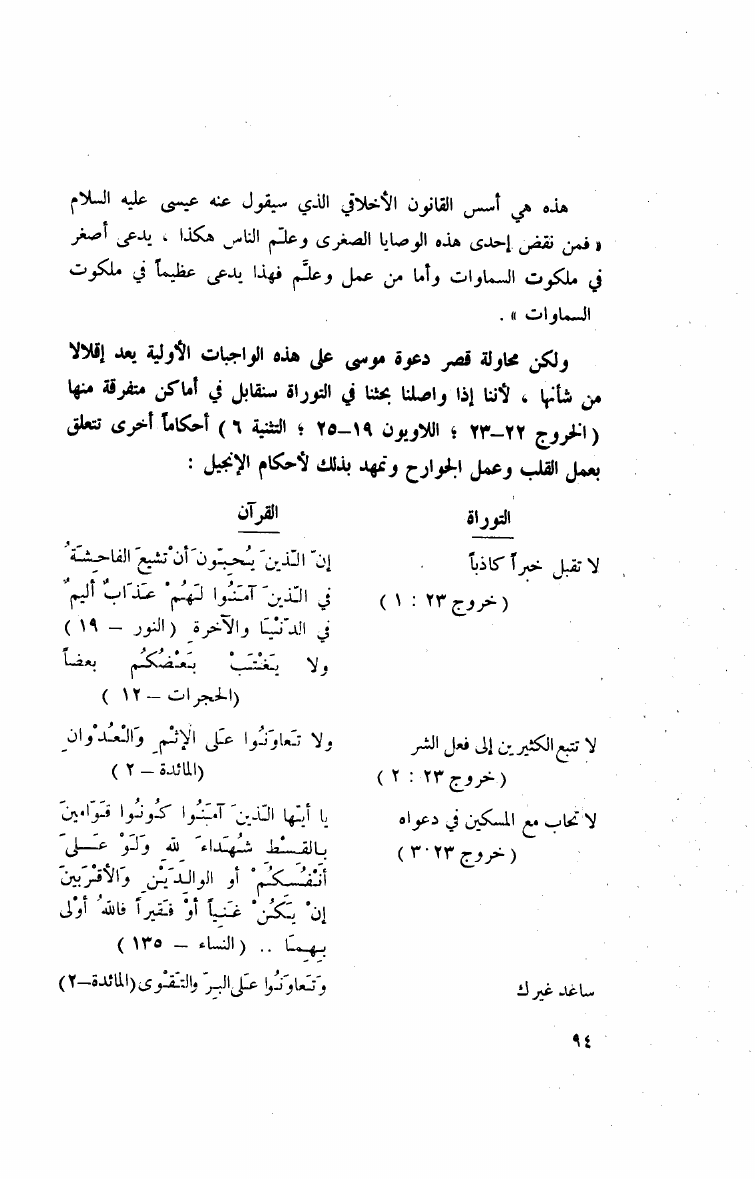 هذه هي أسس القانون الأخلاقي الذي سيقول عنه عيسى عليه السلام
« فمن نقض إحدى هذه الوصايا الصغرى وعلّم الناس هكذا ، يدعى أصغر
في ملكوت السماوات وأما من عمل وعلَّم فهذا يدعى عظيماً في ملكوت
السماوات » .
ولكن محاولة قصر دعوة موسى على هذه الواجبات الأولية يعد إقلالا
من شأنها ، لأننا إذا واصلنا بحثنا في التوراة سنقابل في أماكن متفرقة منها
( الخروج ٢٢–٢٣ ؛ اللاويون ١٩–٢٥ ؛ التثنية ٦ ) أحكاماً أخرى تتعلق
بعمل القلب وعمل الجوارح وتمهد بذلك لأحكام الإنجيل :
التوراة
لا تقبل خبراً كاذباً
( خروج ٢٣ : ١ )
لا تتبع الكثيرين إلى فعل الشر
( خروج ٢٣ : ٢ )
لا تحاب مع المسكين في دعواه
( خروج ٢٣·٣ )
ساعد غيرك
القرآن
إنّ الّذينَ يُحِبّونَ أنْ تشيعَ الفاحِشةُ
في الّذينَ آمَنُوا لَهُمْ عَذَابٌ أليمٌ
في الدّنْيَا والآخرةِ ( النور – ١٩ )
ولا يَغْتَبْ بَعْضُكُم بعضاً
(الحجرات – ١٢ )
ولا تَعاوَنُوا عَلى الإثْمِ وَالْعُدْوانِ
(المائدة – ٢ )
يا أيّها الّذينَ آمَنُوا كُونُوا قَوّامينَ
بالقِسْطِ شُهَداءَ للهِ وَلَوْ عَلَى
أنْفُسِكُمْ أو الوالِدَيْنِ وَالأقْرَبينَ
إنْ يَكُنْ غَنياً أوْ فَقيراً فاللهُ أوْلى
بِهِمَا .. ( النساء – ١٣٥ )
وَتَعاوَنُوا عَلى البرّ والتّقْوى (المائدة–٢)
٩٤